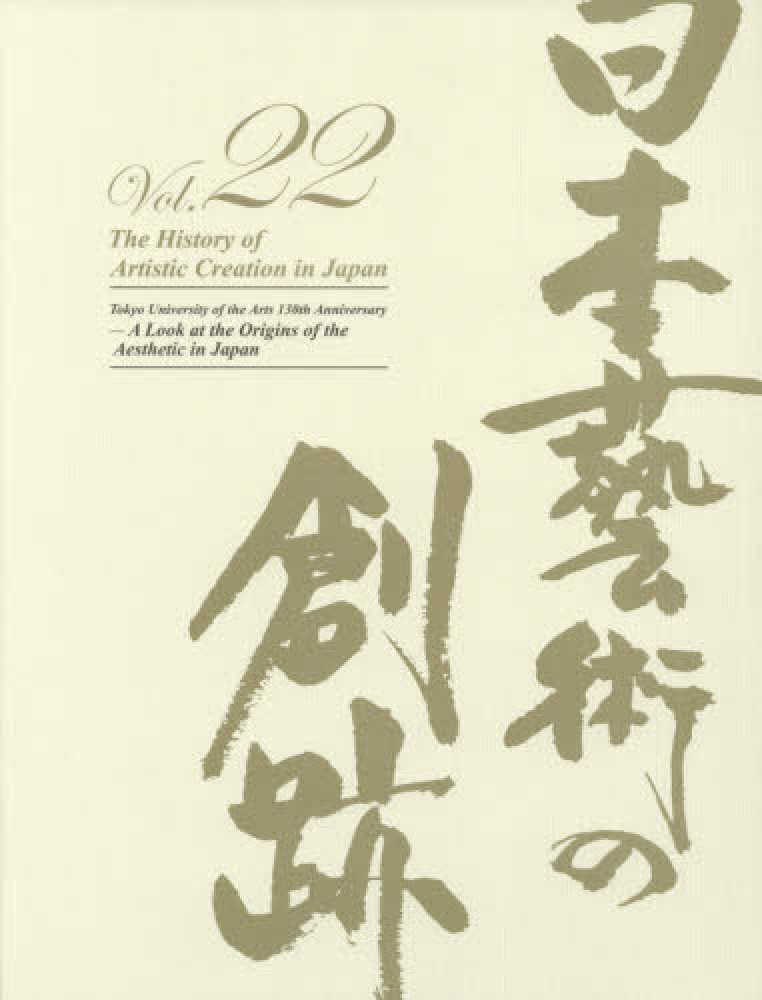 日本藝術の
創跡
Vol.22
The History of
Artistic Creation in Japan
Tokyo University of the Arts 130th Anniversary
— A Look at the Origins of the
Aesthetic in Japan